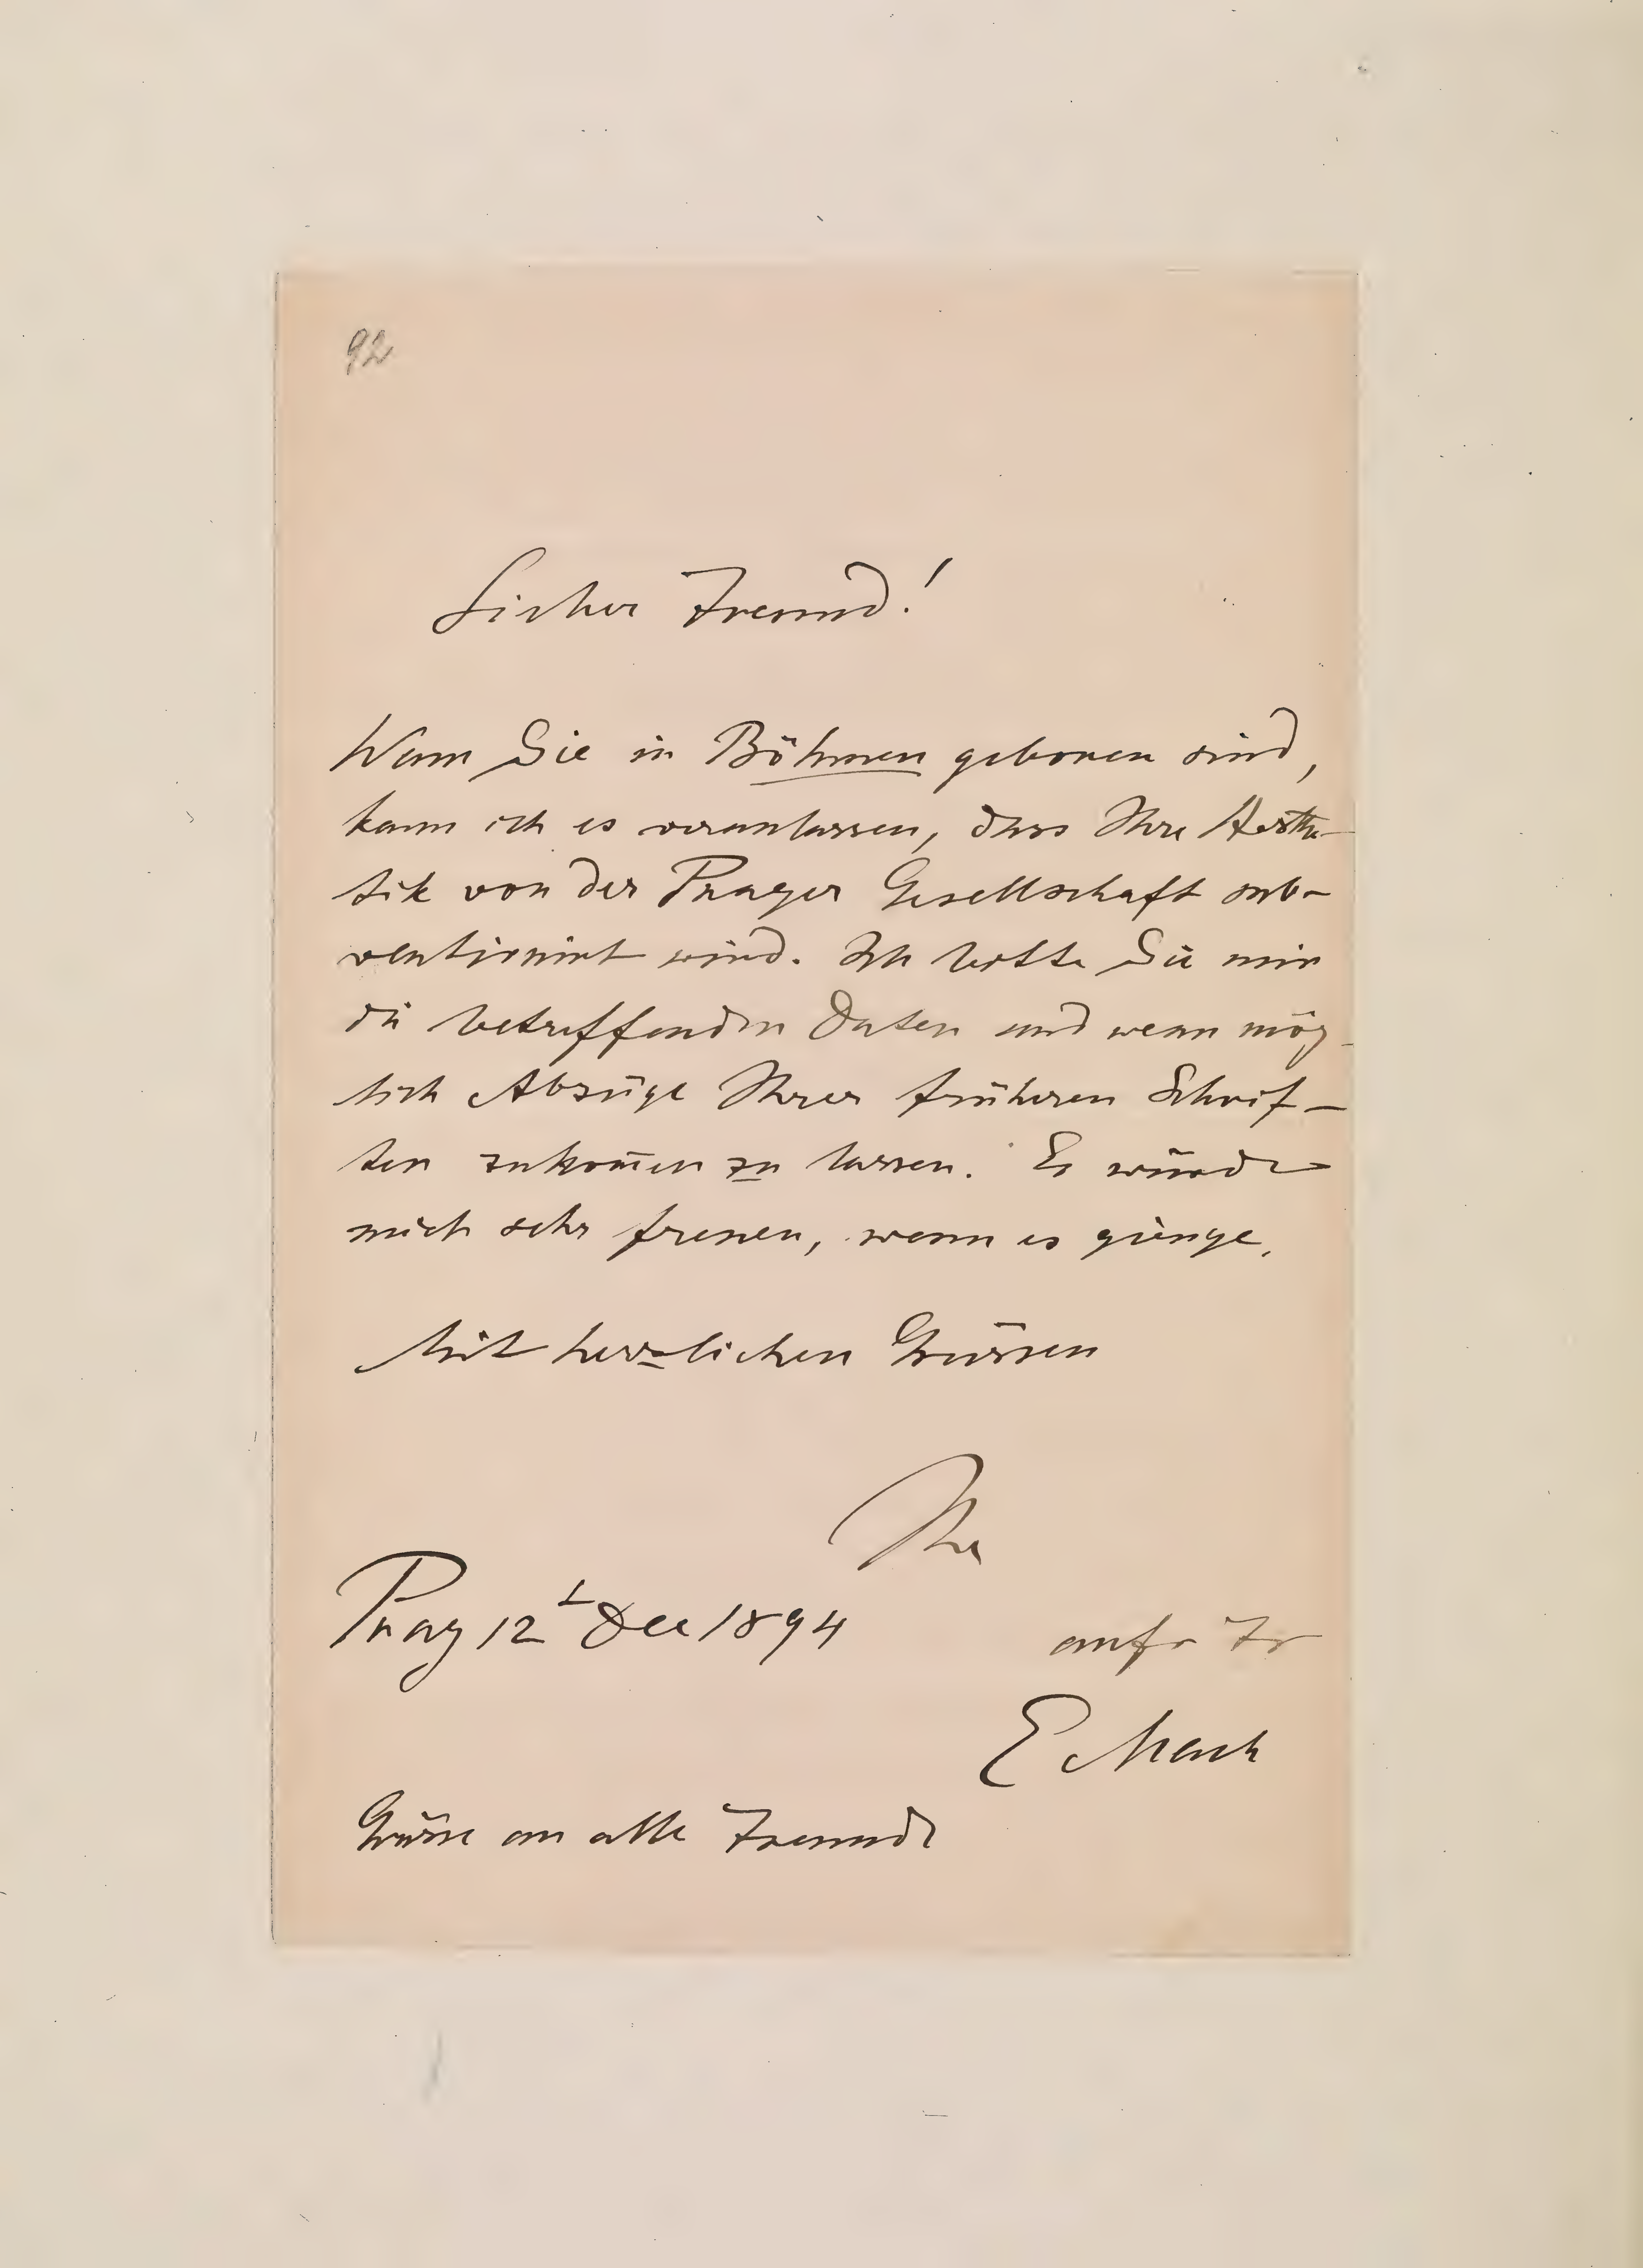 92
Lieber Freund!
Wenn Sie in Böhmen geboren sind,
kann ich es veranlassen, dass Ihre Aesthe-
tik von der Prager Gesellschaft sub-
ventionirt wird. Ich bitte Sie mir
die betreffenden Daten und wenn mög-
lich Abzüge Ihrer früheren Schrif-
ten zukom̄en zu lassen. Es würde
mich sehr freuen, wenn es gienge.
Mit herzlichen Grüssen
Ihr
Prag 12 Dec 1894
aufr Fr
E Mach
Grüsse an alle Freunde